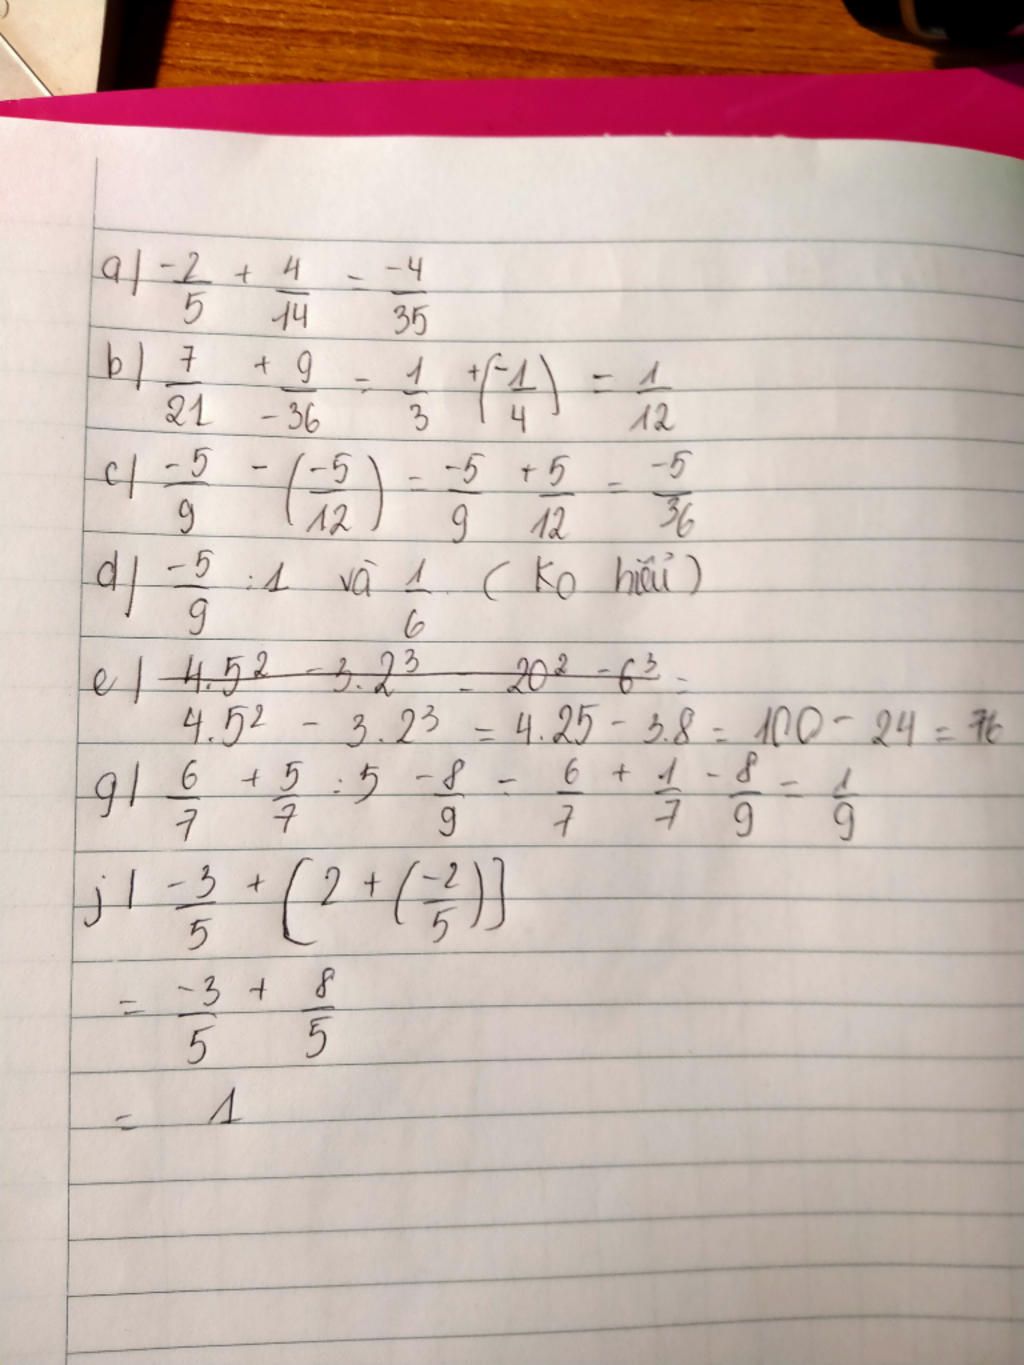 a) -2/5 + 4/14 = -4/35
b) 7/21 + 9/-36 = 1/3 + (-1/4) = 1/12
c) -5/9 - (-5/12) = -5/9 + 5/12 = -5/36
d) -5/9 : 1 và 1/6 (Ko hiểu)
e) 4.5² - 3.2³ = 20² - 6³ =
4.5² - 3.2³ = 4.25 - 3.8 = 100 - 24 = 76
g) 6/7 + 5/7 : 5 - 8/9 = 6/7 + 1/7 - 8/9 = 1/9
j) -3/5 + [2 + (-2/5)]
= -3/5 + 8/5
= 1